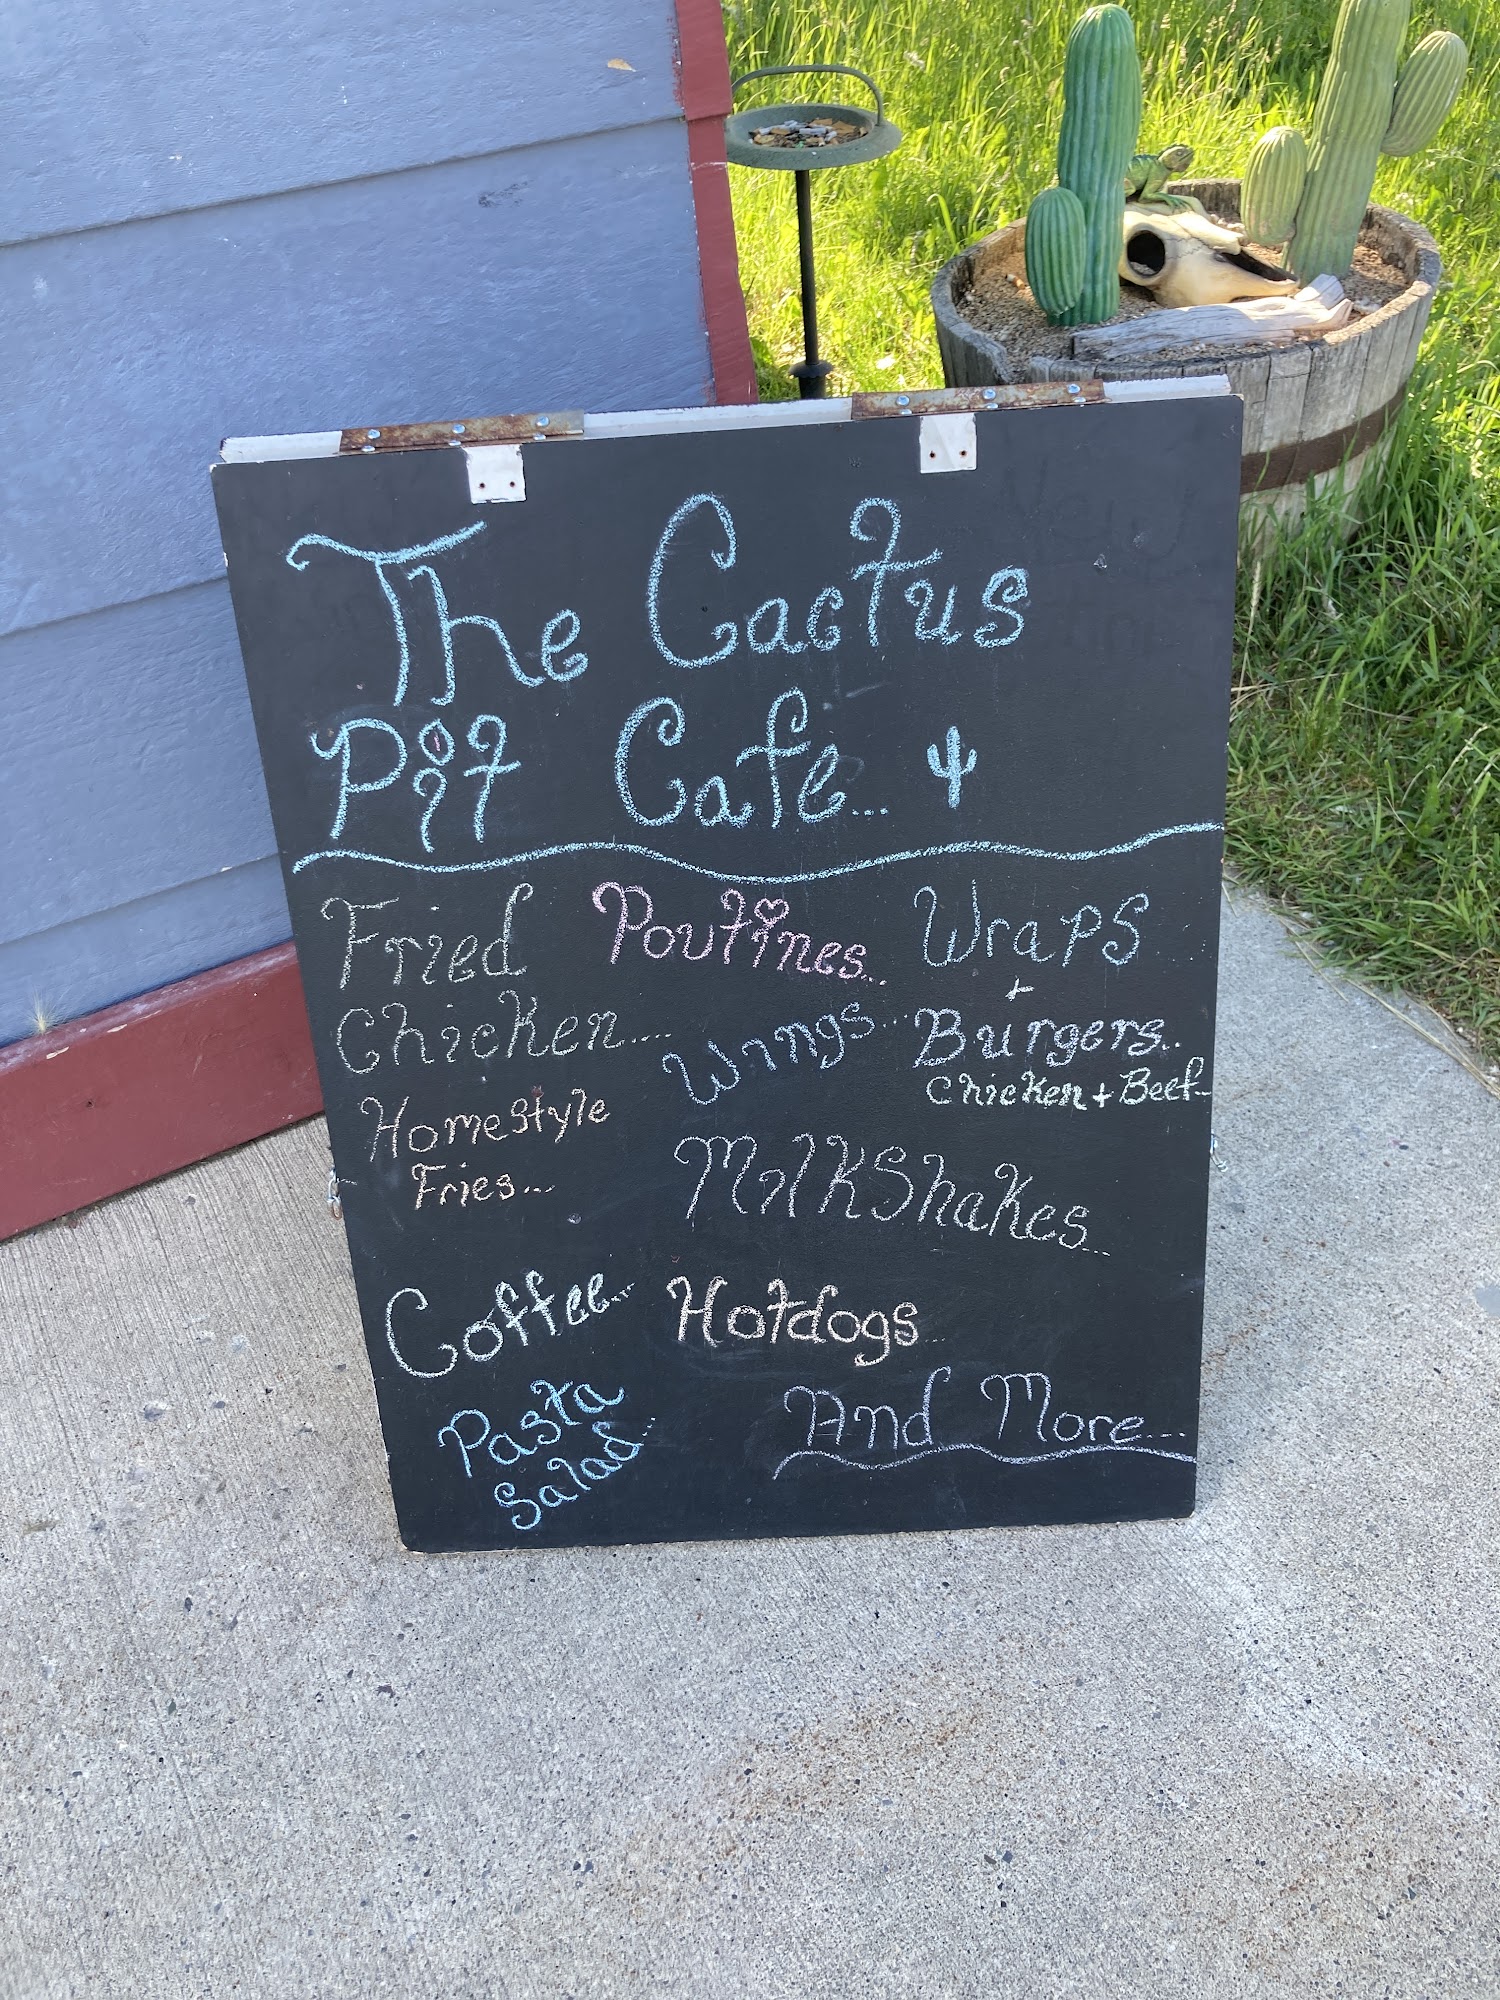 The Cactus
Pit Cafe...
Fried
Chicken....
Homestyle
Fries...
Poutines...
Wings...
Wraps
+
Burgers..
Chicken + Beef-
MilkShakes...
Coffee...
Hotdogs...
Pasta
Salad...
And More...